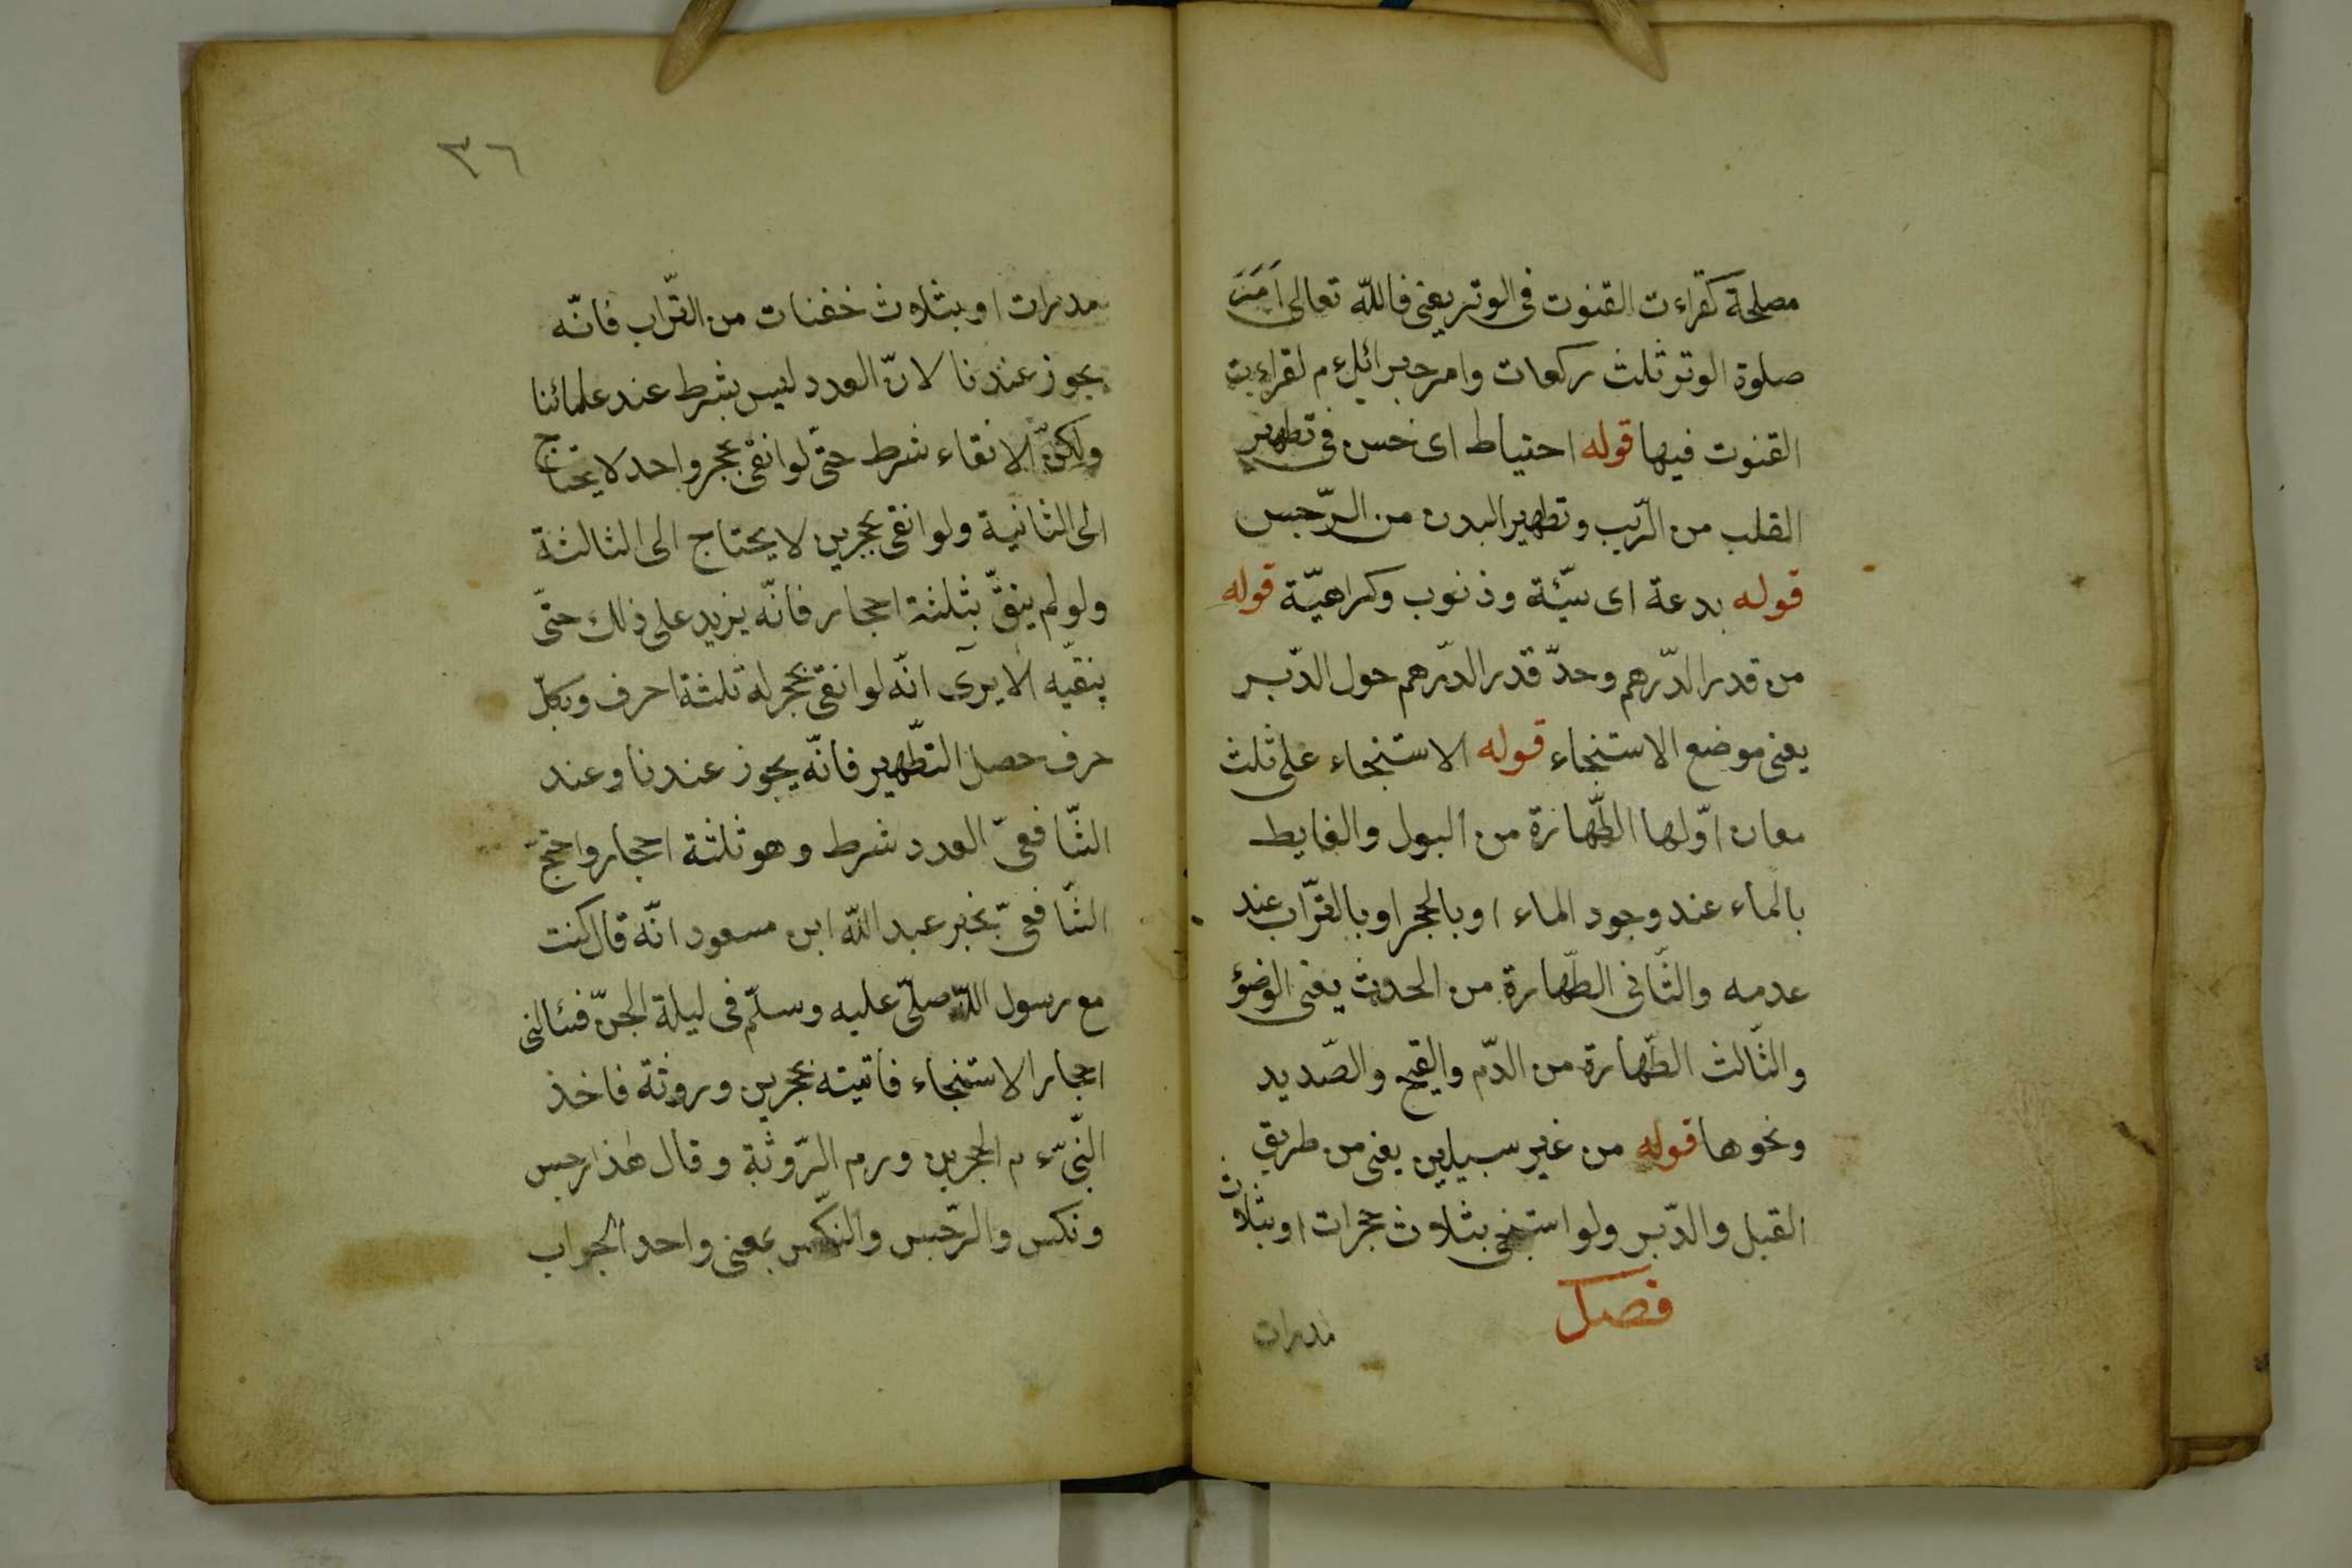 مصلحة كقراءت القنوت فى الوتر يعنى فالله تعالى اَمَرَ
صلوة الوتر ثلث ركعات وامر جبرائل ءم لقراءت
القنوت فيها قوله احتياط اى خس فى تطهير
القلب من الرّيب وتطهير البدن من الرّجس
قوله بدعة اى سيّئة وذنوب وكراهيّة قوله
من قدر الدّرهم وحدّ قدر الدّرهم حول الدّبر
يعنى موضع الاستنجاء قوله الاستنجاء على ثلث
معان اوّلها الطّهارة من البول والغايط
بالماء عند وجود الماء او بالحجر او بالتّراب عند
عدمه والثّانى الطّهارة من الحدث يعنى الوضؤ
والثّالث الطّهارة من الدّم والقيح والصّديد
ونحوها قوله من غير سبيلين يعنى من طريق
القبل والدّبر ولو استنجى بثلاث حجرات او بثلاث
فصل
مدرات
٣٦
مدرات او بثلاث خفنات من التّراب فانّه
يجوز عندنا لانّ العدد ليس بشرط عند علمائنا
ولكنّ الانقاء شرط حتّى لو انقى بحجر واحد لا يحتاج
الى الثانية ولو انقى بحجرين لا يحتاج الى الثالثة
ولو لم ينقّ بثلثة احجار فانّه يزيد على ذلك حتّى
ينقيّه الا يرى انّه لو انقى بحجر له ثلثة احرف وبكلّ
حرف حصل التطّهير فانّه يجوز عندنا وعند
الشّافعىّ العدد شرط وهو ثلثة احجار واحتجّ
الشّافعىّ بخبر عبد الله ابن مسعود انّه قال كنت
مع رسول الله صلّى عليه وسلّم فى ليلة الجنّ فسئالنى
احجار الاستنجاء فاتيته بحجرين وروثة فاخذ
النّبىّ ءم الحجرين ورم الرّوثة وقال هذا رجس
ونكس والرّجس والنّكس بمعنى واحد الجواب